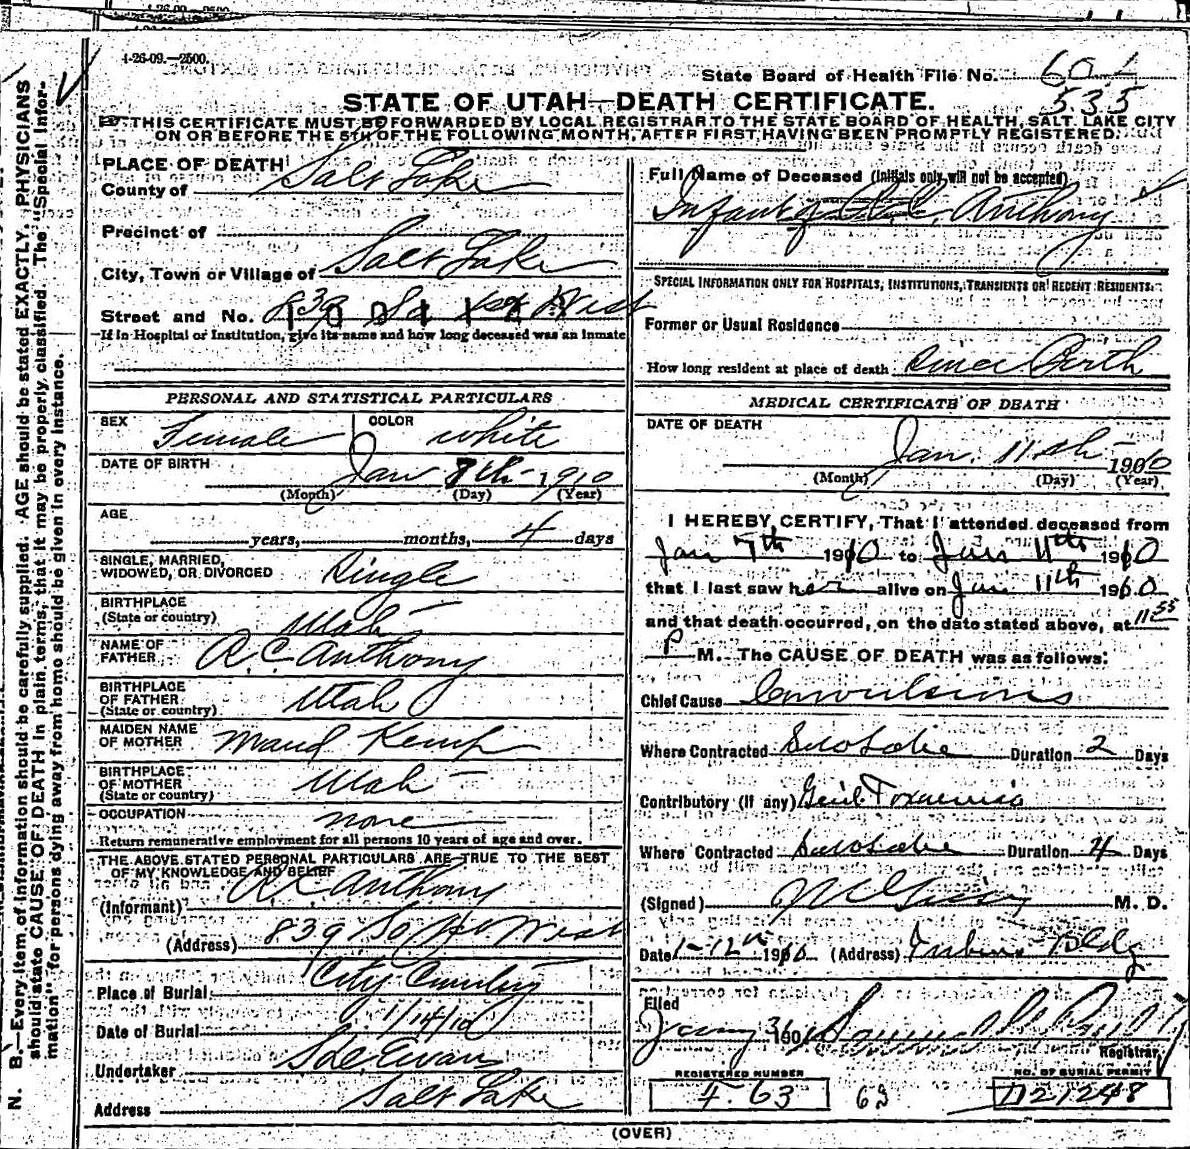 4-26-09.—2500.
State Board of Health File No.
535
STATE OF UTAH—DEATH CERTIFICATE.
THIS CERTIFICATE MUST BE FORWARDED BY LOCAL REGISTRAR TO THE STATE BOARD OF HEALTH, SALT LAKE CITY
ON OR BEFORE THE 5TH OF THE FOLLOWING MONTH, AFTER FIRST HAVING BEEN PROMPTLY REGISTERED.
N. B.—Every item of information should be carefully supplied. AGE should be stated EXACTLY. PHYSICIANS
should state CAUSE OF DEATH in plain terms, that it may be properly classified. The "Special Infor-
mation" for persons dying away from home should be given in every instance.
PLACE OF DEATH
County of Salt Lake
Precinct of
City, Town or Village of Salt Lake
Street and No. 839 So West
If in Hospital or Institution, give its name and how long deceased was an inmate
PERSONAL AND STATISTICAL PARTICULARS
SEX Female COLOR white
DATE OF BIRTH Jan 8th 1910
(Month) (Day) (Year)
AGE
years, months, 4 days
SINGLE, MARRIED,
WIDOWED, OR DIVORCED Single
BIRTHPLACE
(State or country) Utah
NAME OF
FATHER R. C Anthony
BIRTHPLACE
OF FATHER
(State or country) Utah
MAIDEN NAME
OF MOTHER Maud Kemp
BIRTHPLACE
OF MOTHER
(State or country) Utah
OCCUPATION none
Return remunerative employment for all persons 10 years of age and over.
THE ABOVE STATED PERSONAL PARTICULARS ARE TRUE TO THE BEST
OF MY KNOWLEDGE AND BELIEF
(Informant) R. C Anthony
(Address) 839 So West
Place of Burial City
Date of Burial 1/14/10
Undertaker Evans
Address Salt Lake
Full Name of Deceased (Initials only will not be accepted)
Infant of Anthony
SPECIAL INFORMATION ONLY FOR HOSPITALS, INSTITUTIONS, TRANSIENTS OR RECENT RESIDENTS.
Former or Usual Residence
How long resident at place of death Since Birth
MEDICAL CERTIFICATE OF DEATH
DATE OF DEATH
Jan. 11th 1910
(Month) (Day) (Year)
I HEREBY CERTIFY, That I attended deceased from
Jan 7th 1910 to Jan 11th 1910
that I last saw her alive on Jan 11th 1910
and that death occurred, on the date stated above, at 11 55
P M. The CAUSE OF DEATH was as follows:
Chief Cause Convulsions
Where Contracted Duration 2 Days
Contributory (if any) Toxaemia
Where Contracted Duration 4 Days
(Signed) M. D.
Date 1-12th 1910 (Address) Bldg
Filed
Registrar
REGISTERED NUMBER
NO. OF BURIAL PERMIT
63
(OVER)